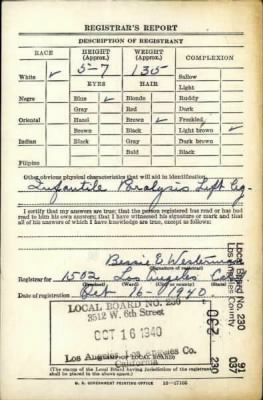 REGISTRAR'S REPORT
DESCRIPTION OF REGISTRANT
RACE HEIGHT (Approx.) WEIGHT (Approx.) COMPLEXION
5-7 135
White ✓ EYES HAIR Sallow
Light
Negro Blue ✓ Blonde Ruddy
Gray Red Dark
Oriental Hazel Brown ✓ Freckled
Brown Black Light brown ✓
Indian Black Gray Dark brown
Bald Black
Filipino
Other obvious physical characteristics that will aid in identification
Infantile Paralysis Left Leg.
I certify that my answers are true; that the person registered has read or has had
read to him his own answers; that I have witnessed his signature or mark and that
all of his answers of which I have knowledge are true, except as follows:
Bessie E Westerman
(Signature of registrar)
Registrar for 1502 Los Angeles Cal
Date of registration Oct 16-1940
LOCAL BOARD NO. 230
3512 W. 6th Street
OCT 16 1940
Los Angeles, Los Angeles Co.
California
(STAMP OF LOCAL BOARD)
(The stamp of the Local Board having jurisdiction of the registrant
shall be placed in the above space.)
U. S. GOVERNMENT PRINTING OFFICE 16-17105
Local Board No. 230 91
Los Angeles County 037
OCT 230
Los